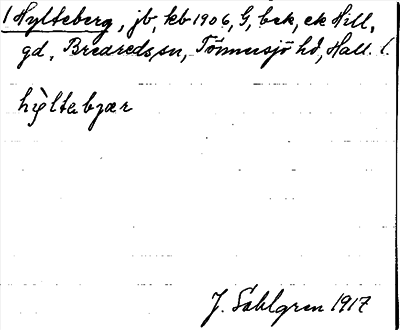 / Hylteberg, jb, kb 1906, G, bek, ek Hill,
gd, Bredreds sn, Tönnersjö hd, Hall. l.
hỳltabjær
J. Sahlgren 1917